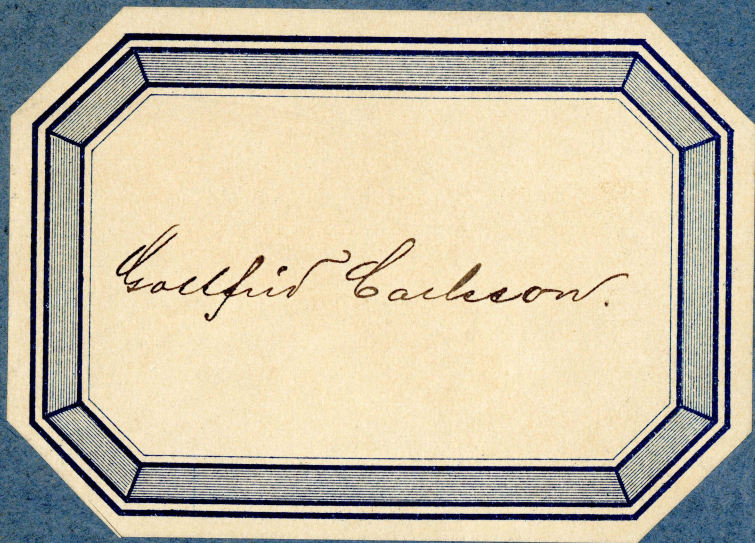 Gottfrid Carlsson.